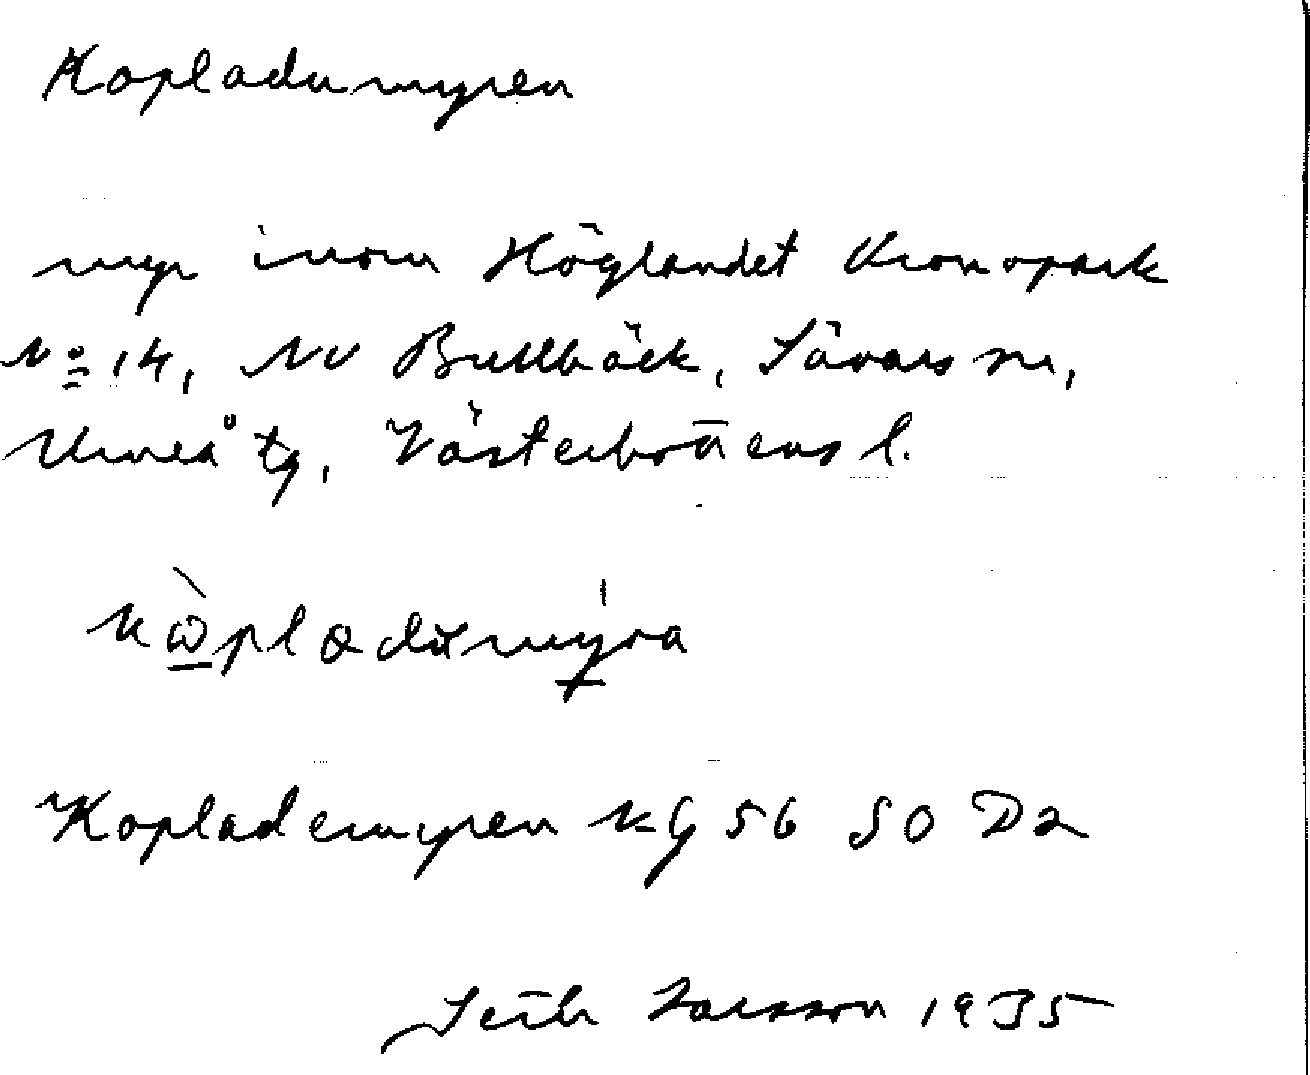 Kopladumyren
myr inom Höglandet Kronopark
No 14, NV Bullbäck, Sävars sn,
Umeå tg, Västerbottens l.
kòpladumýra
Koplademyren KG 56 SO D2
Larsson 1935